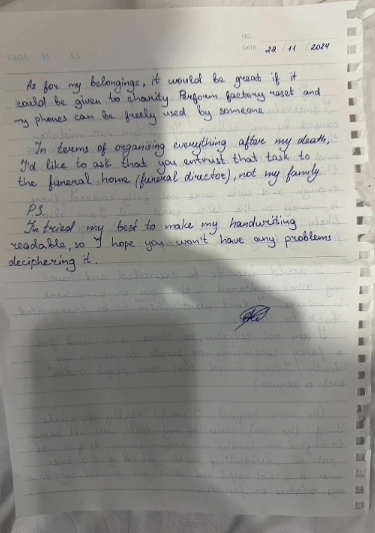 NO.
DATE / 11 / 2024
As for my belongings, it would be great if it
could be given to charity. Perform factory reset and
my phones can be freely used by someone.
In terms of organising everything after my death,
I'd like to ask that you entrust that task to
the funeral home (funeral director), not my family.
P.S.
I've tried my best to make my handwriting
readable, so I hope you won't have any problems
deciphering it.